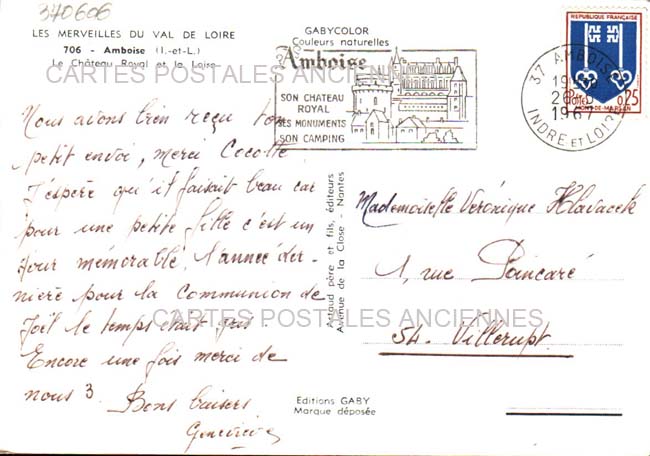 370606
LES MERVEILLES DU VAL DE LOIRE
706 - Amboise (I.-et-L.)
Le Château Royal et la Loire
GABYCOLOR
Couleurs naturelles
Amboise
SON CHATEAU
ROYAL
SES MONUMENTS
SON CAMPING
37 AMBOISE
1967
INDRE ET LOIRE
REPUBLIQUE FRANÇAISE
Postes 0,25
MONT-DE-MARSAN
CARTES POSTALES ANCIENNES
Nous avons bien reçu ton
petit envoi, merci Cocotte
J'espère qu'il faisait beau car
pour une petite fille c'est un
jour mémorable, l'année der-
nière pour la Communion de
Joël le temps était gris.
Encore une fois merci de
nous 3. Bons baisers
Geneviève
Artaud père et fils, éditeurs
Avenue de la Close - Nantes
Mademoiselle Veronique Hlavacek
1, rue Poincaré
54. Villerupt
CARTES POSTALES ANCIENNES
Editions GABY
Marque déposée